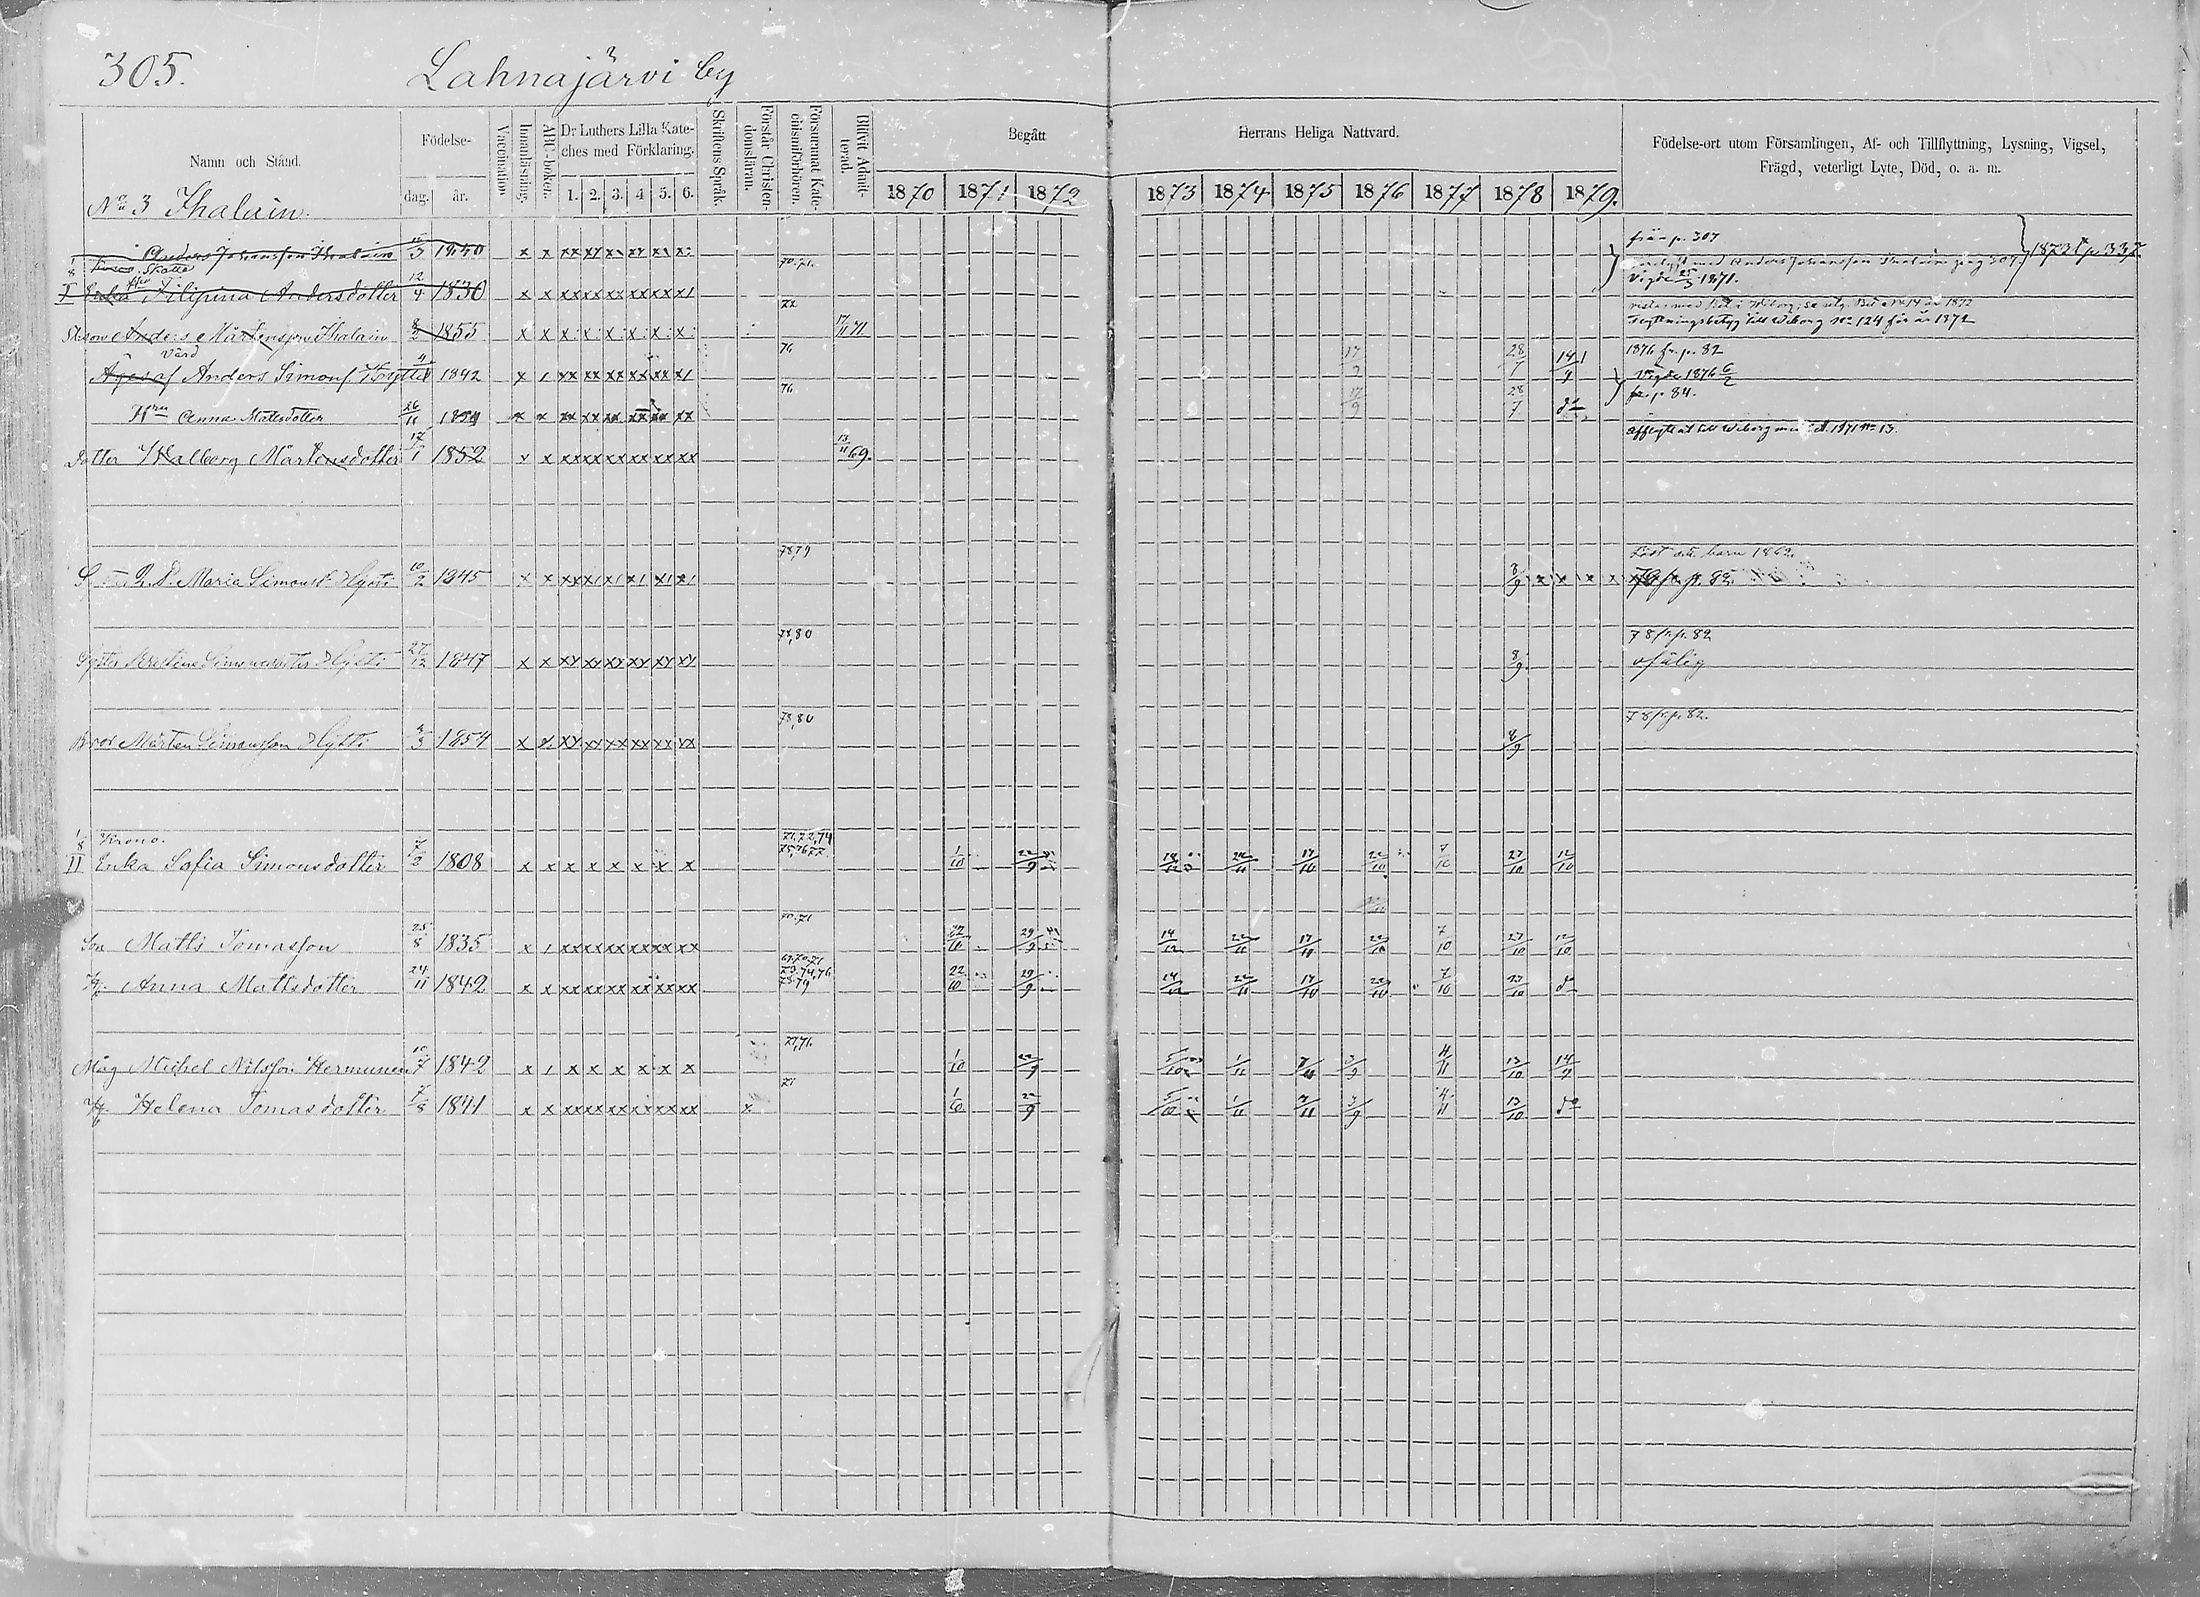 305. Lahnajärvi by
Namn och Stånd.
Födelse-
dag. år.
Vaccination
Innanläsning.
ABC-boken.
Dr Luthers Lilla Kate-
ches med Förklaring.
1. 2. 3. 4 5. 6.
Skriftens Språk.
Förstår Christen-
domsläran.
Försummat Kate-
chismiförhören.
Blifvit Admit-
terad.
Begått Herrans Heliga Nattvard.
1870 1871 1872 1873 1874 1875 1876 1877 1878 1879.
Födelse-ort utom Församlingen, Af- och Tillflyttning, Lysning, Vigsel,
Frägd, veterligt Lyte, Död, o. a. m.
No 3 Ihalain.
från p. 307
Anders Johansson Ihalain 3 1840 x x xx xx 70.71. 1873 p. 337
Skatte
med Anders Johansson Ihalain pag 307
Vigde 1871.
I Erika Filipina Andersdotter 12/4 1830 x x xx xx xx xx xx x1 72
Anders Mårtensson Ihalain 8/2 1855 x x 17/11 71
Flyttningsbetyg till Wiborg No 124 för år 1872
Vård
Anders Simonss Hytti 4 1842 x 1 xx xx xx xx xx x1 76 17/9 28/7 14/9 1876 fr. p. 82
Vigde 1876 6/2
Hru Anna Mattsdotter 26/11 x x xx xx xx xx xx xx 76 17/9 28/7 do fr. p. 84.
Dotter Walborg Mårtensdotter 17/1 1852 x x xx xx xx xx xx xx 13/11 69. afflyttat till Wiborg 1871 No 13.
Maria Simonsd. Hytti 10/2 1845 x x 78,79 8/9 x x x x barn 1862.
79 fr. p. 82.
Syster Kristina Simonsdotter Hytti 27/12 1847 x x xx xx xx xx xx xx 78,80 8/9 78 fr. p. 82
ofälig
Bror Mårten Simonsson Hytti 4/3 1854 x x xx xx xx xx xx xx 78,80 8/9 78 fr. p. 82.
1/8 Krono.
II Erika Sofia Simonsdotter 7/2 1808 x x x x x x x x 71,72,74 75,76 77. 1/10 22/9 22/11 17/10 22/10 7/10 27/10 12/10
Son Matts Tomasson 25/8 1835 x 1 xx xx xx xx xx xx 70.71 22/10 29/9 14/12 22/11 17/10 22/10 7/10 27/10 12/10
H. Anna Mattsdotter 24/11 1842 x x xx xx xx xx xx xx 69.70.71 73.74,76 78.79 22/10 29/9 14/12 22/11 17/10 22/10 7/10 27/10 do
Måg Mickel Nilsson Hermunen 10/7 1842 x 1 x x x x x x 71,76. 1/10 22/9 5/10 1/11 7/11 3/9 4/11 13/10 14/9
H. Helena Tomasdotter 1841 x x xx xx xx xx xx xx x 71 1/10 22/9 5/10 1/11 7/11 3/9 4/11 13/10 do